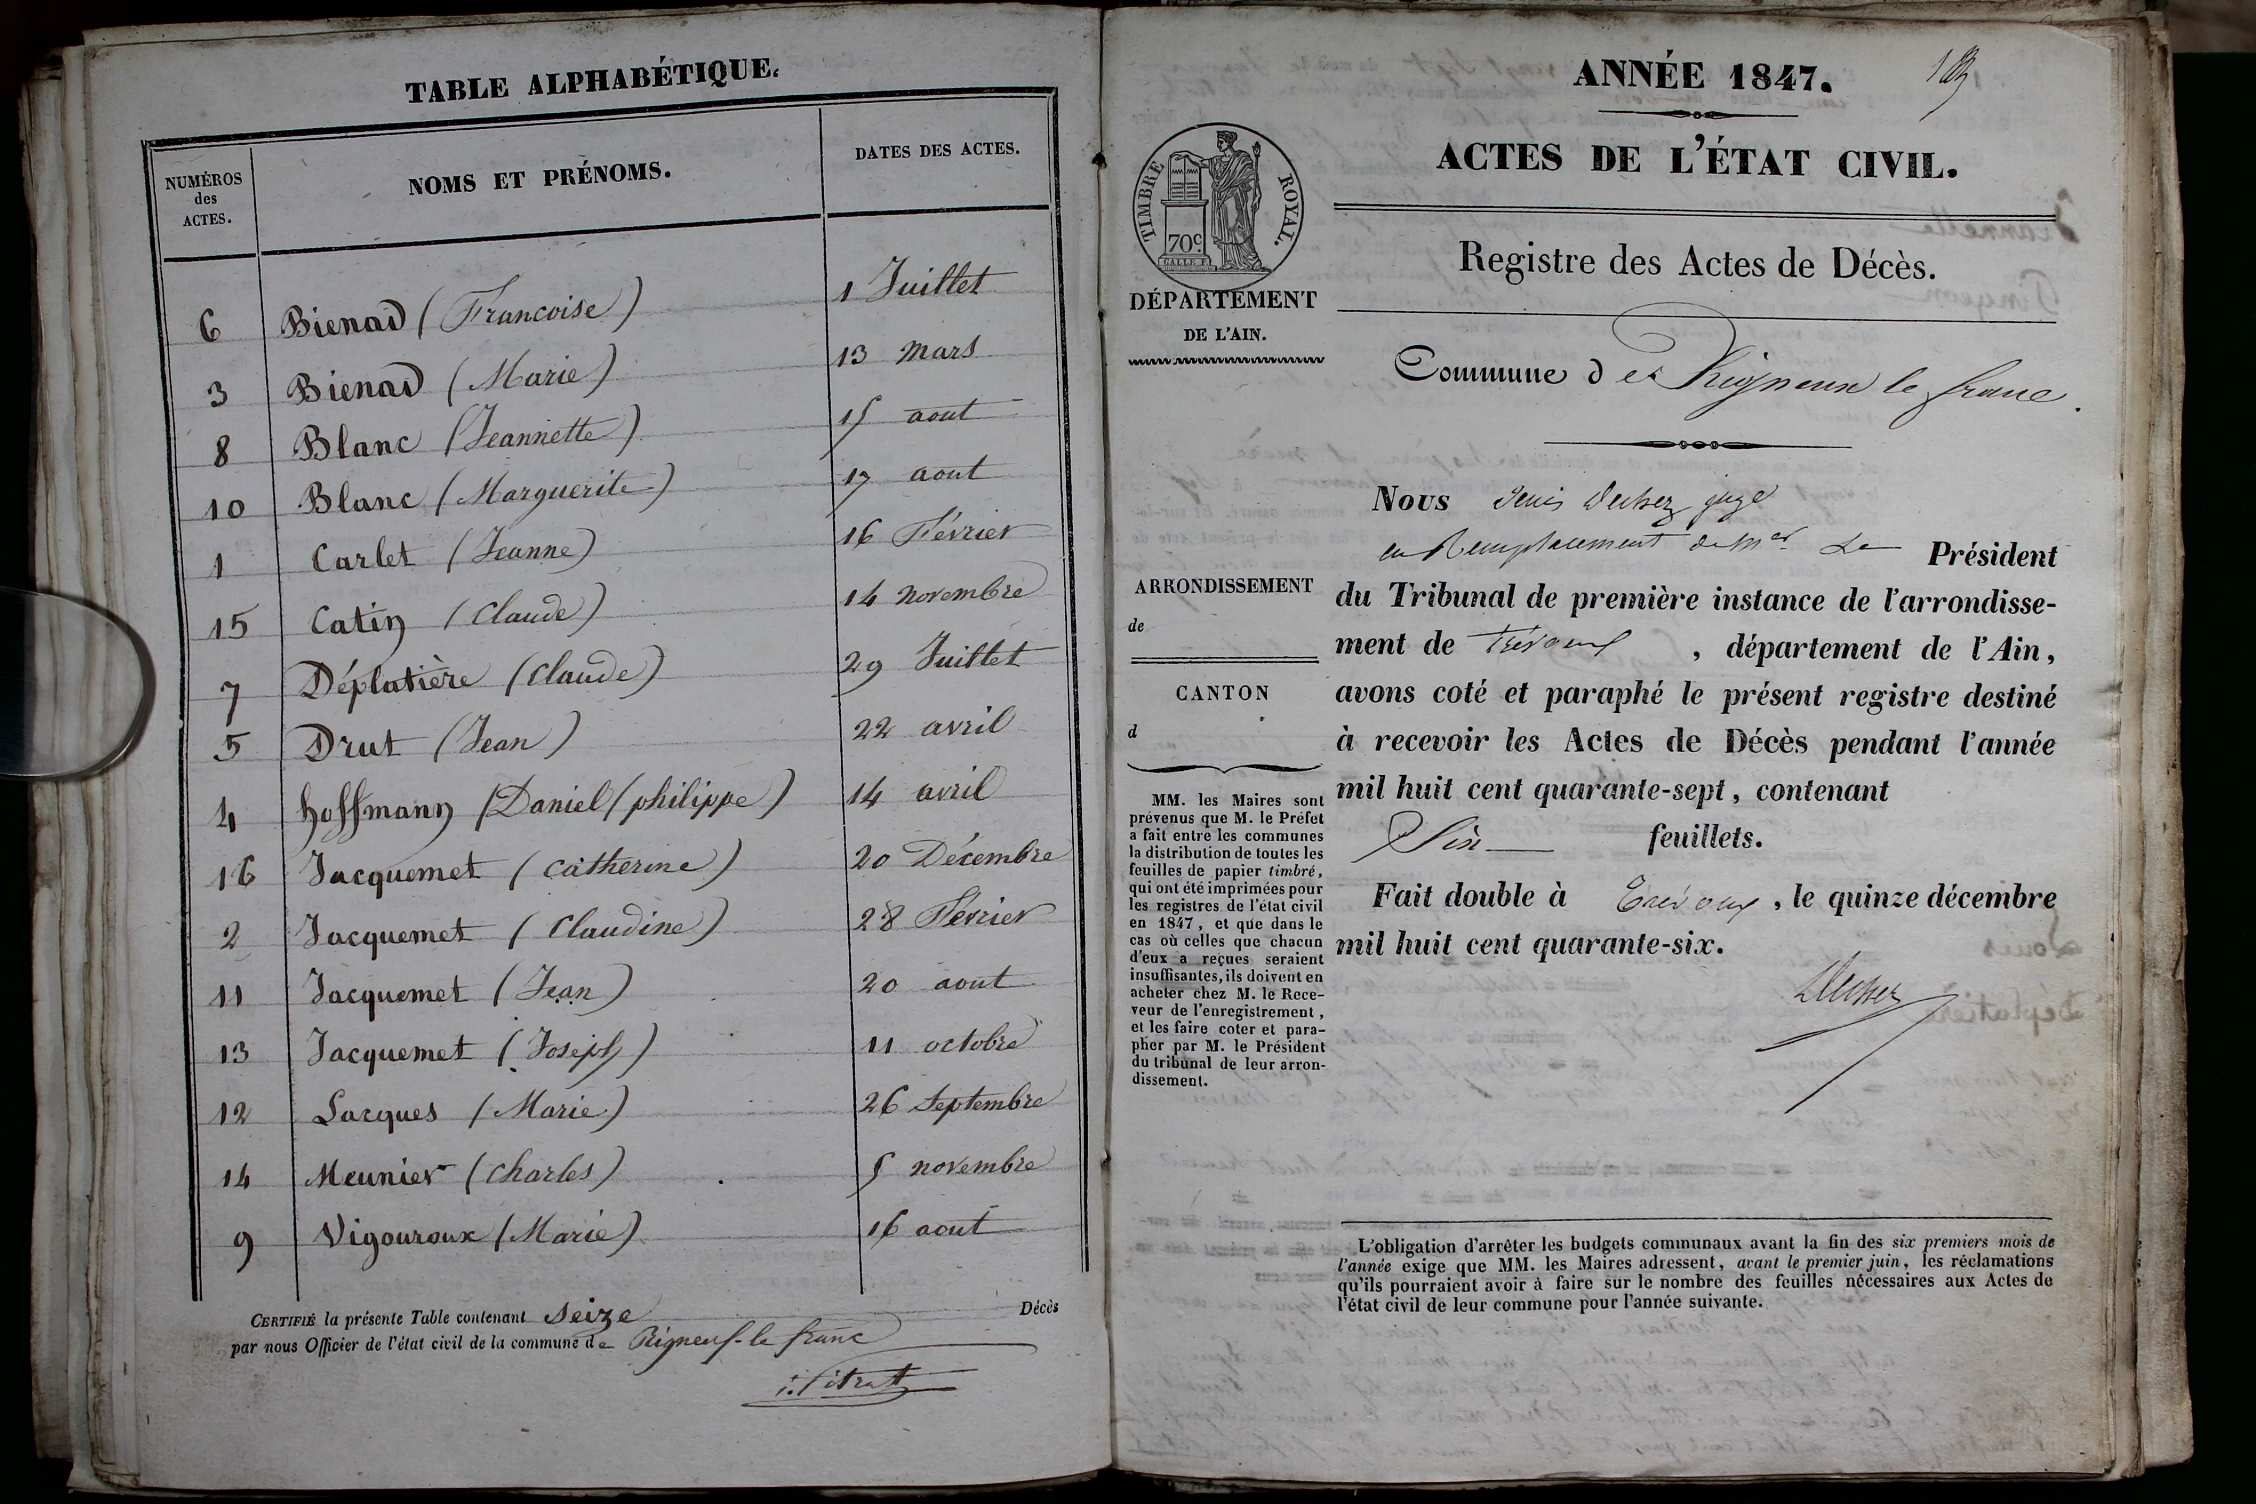 TABLE ALPHABÉTIQUE.
NUMÉROS des ACTES.
NOMS ET PRÉNOMS.
DATES DES ACTES.
6 Bienad (Francoise) 1 Juillet
3 Bienad (Marie) 13 mars
8 Blanc (Jeannette) 15 aout
10 Blanc (Marguerite) 17 aout
1 Carlet (Jeanne) 16 Février
15 Catin (Claude) 14 novembre
7 Déplatière (Claude) 29 Juillet
5 Drut (Jean) 22 avril
4 hoffmann (Daniel (philippe) 14 avril
16 Jacquemet (Catherine) 20 Décembre
2 Jacquemet (Claudine) 28 Février
11 Jacquemet (Jean) 20 aout
13 Jacquemet (Joseph) 11 octobre
12 Lacques (Marie) 26 Septembre
14 Meunier (Charles) 5 novembre
9 Vigouroux (Marie) 16 aout
CERTIFIÉ la présente Table contenant seize Décès
par nous Officier de l'état civil de la commune de Rigneuf-le franc
ANNÉE 1847.
ACTES DE L'ÉTAT CIVIL.
TIMBRE ROYAL.
70c.
DÉPARTEMENT
DE L'AIN.
Registre des Actes de Décès.
Commune de Rigneux le franc.
Nous juge
en Remplacement de Mr. Le Président
du Tribunal de première instance de l'arrondisse-
ment de Trévoux, département de l'Ain,
avons coté et paraphé le présent registre destiné
à recevoir les Actes de Décès pendant l'année
mil huit cent quarante-sept, contenant
Six feuillets.
Fait double à Trévoux, le quinze décembre
mil huit cent quarante-six.
ARRONDISSEMENT
de
CANTON
d
MM. les Maires sont
prévenus que M. le Préfet
a fait entre les communes
la distribution de toutes les
feuilles de papier timbré,
qui ont été imprimées pour
les registres de l'état civil
en 1847, et que dans le
cas où celles que chacun
d'eux a reçues seraient
insuffisantes, ils doivent en
acheter chez M. le Rece-
veur de l'enregistrement,
et les faire coter et para-
pher par M. le Président
du tribunal de leur arron-
dissement.
L'obligation d'arrêter les budgets communaux avant la fin des six premiers mois de
l'année exige que MM. les Maires adressent, avant le premier juin, les réclamations
qu'ils pourraient avoir à faire sur le nombre des feuilles nécessaires aux Actes de
l'état civil de leur commune pour l'année suivante.